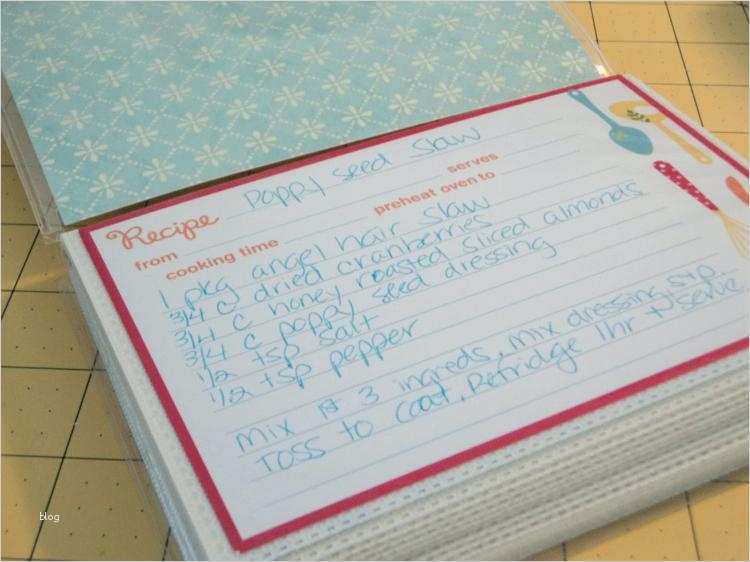 Recipe Poppy Seed Slaw
from serves
cooking time preheat oven to
1 pkg angel hair slaw
3/4 c dried cranberries
3/4 c honey roasted sliced almonds
3/4 c poppy seed dressing
1/2 tsp salt
1/2 tsp pepper
Mix 1st 3 ingreds, mix dressing, s+p
Toss to coat, Refridge 1hr + serve
blog